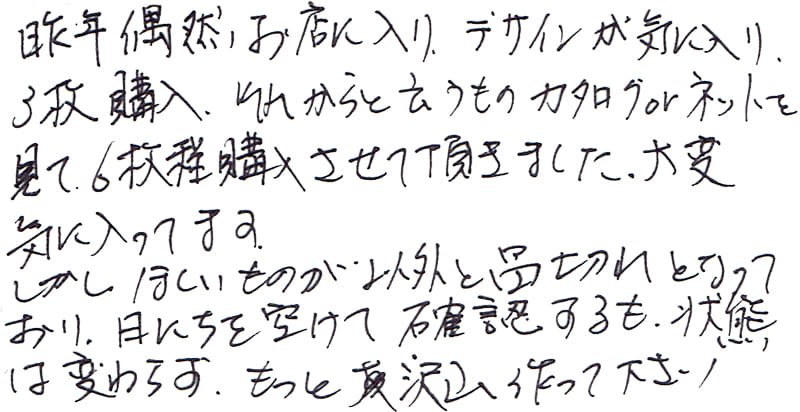 昨年偶然、お店に入り、デザインが気に入り、
3枚購入、それからと云うものカタログorネットを
見て、6枚程購入させて頂きました。大変
気に入ってます。
しかしほしいものが以外と品切れとなって
おり、日にちを空けて確認するも、状態
は変わらず、もっと沢山作って下さい!